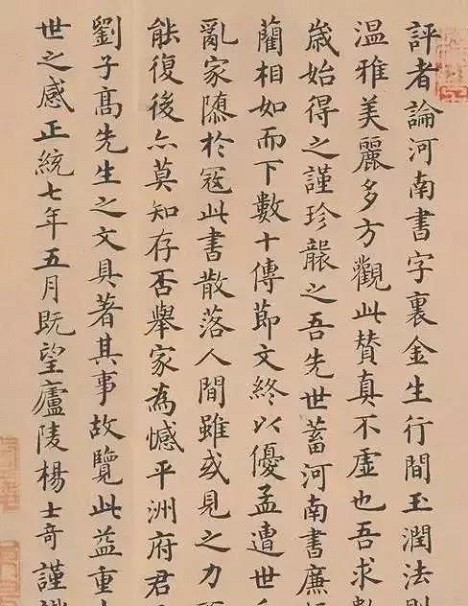 評者論河南書字裏金生行間玉潤法則
温雅美麗多方觀此賛真不虛也吾求數
歳始得之謹珍襲之吾先世蓄河南書廉
藺相如而下數十傳節文終以優孟遭世
亂家於寇此書散落人間雖或見之力
能復後亦莫知存否舉家為憾平洲府君
劉子髙先生之文具著其事故覽此益重
世之感正統七年五月既望廬陵楊士奇謹